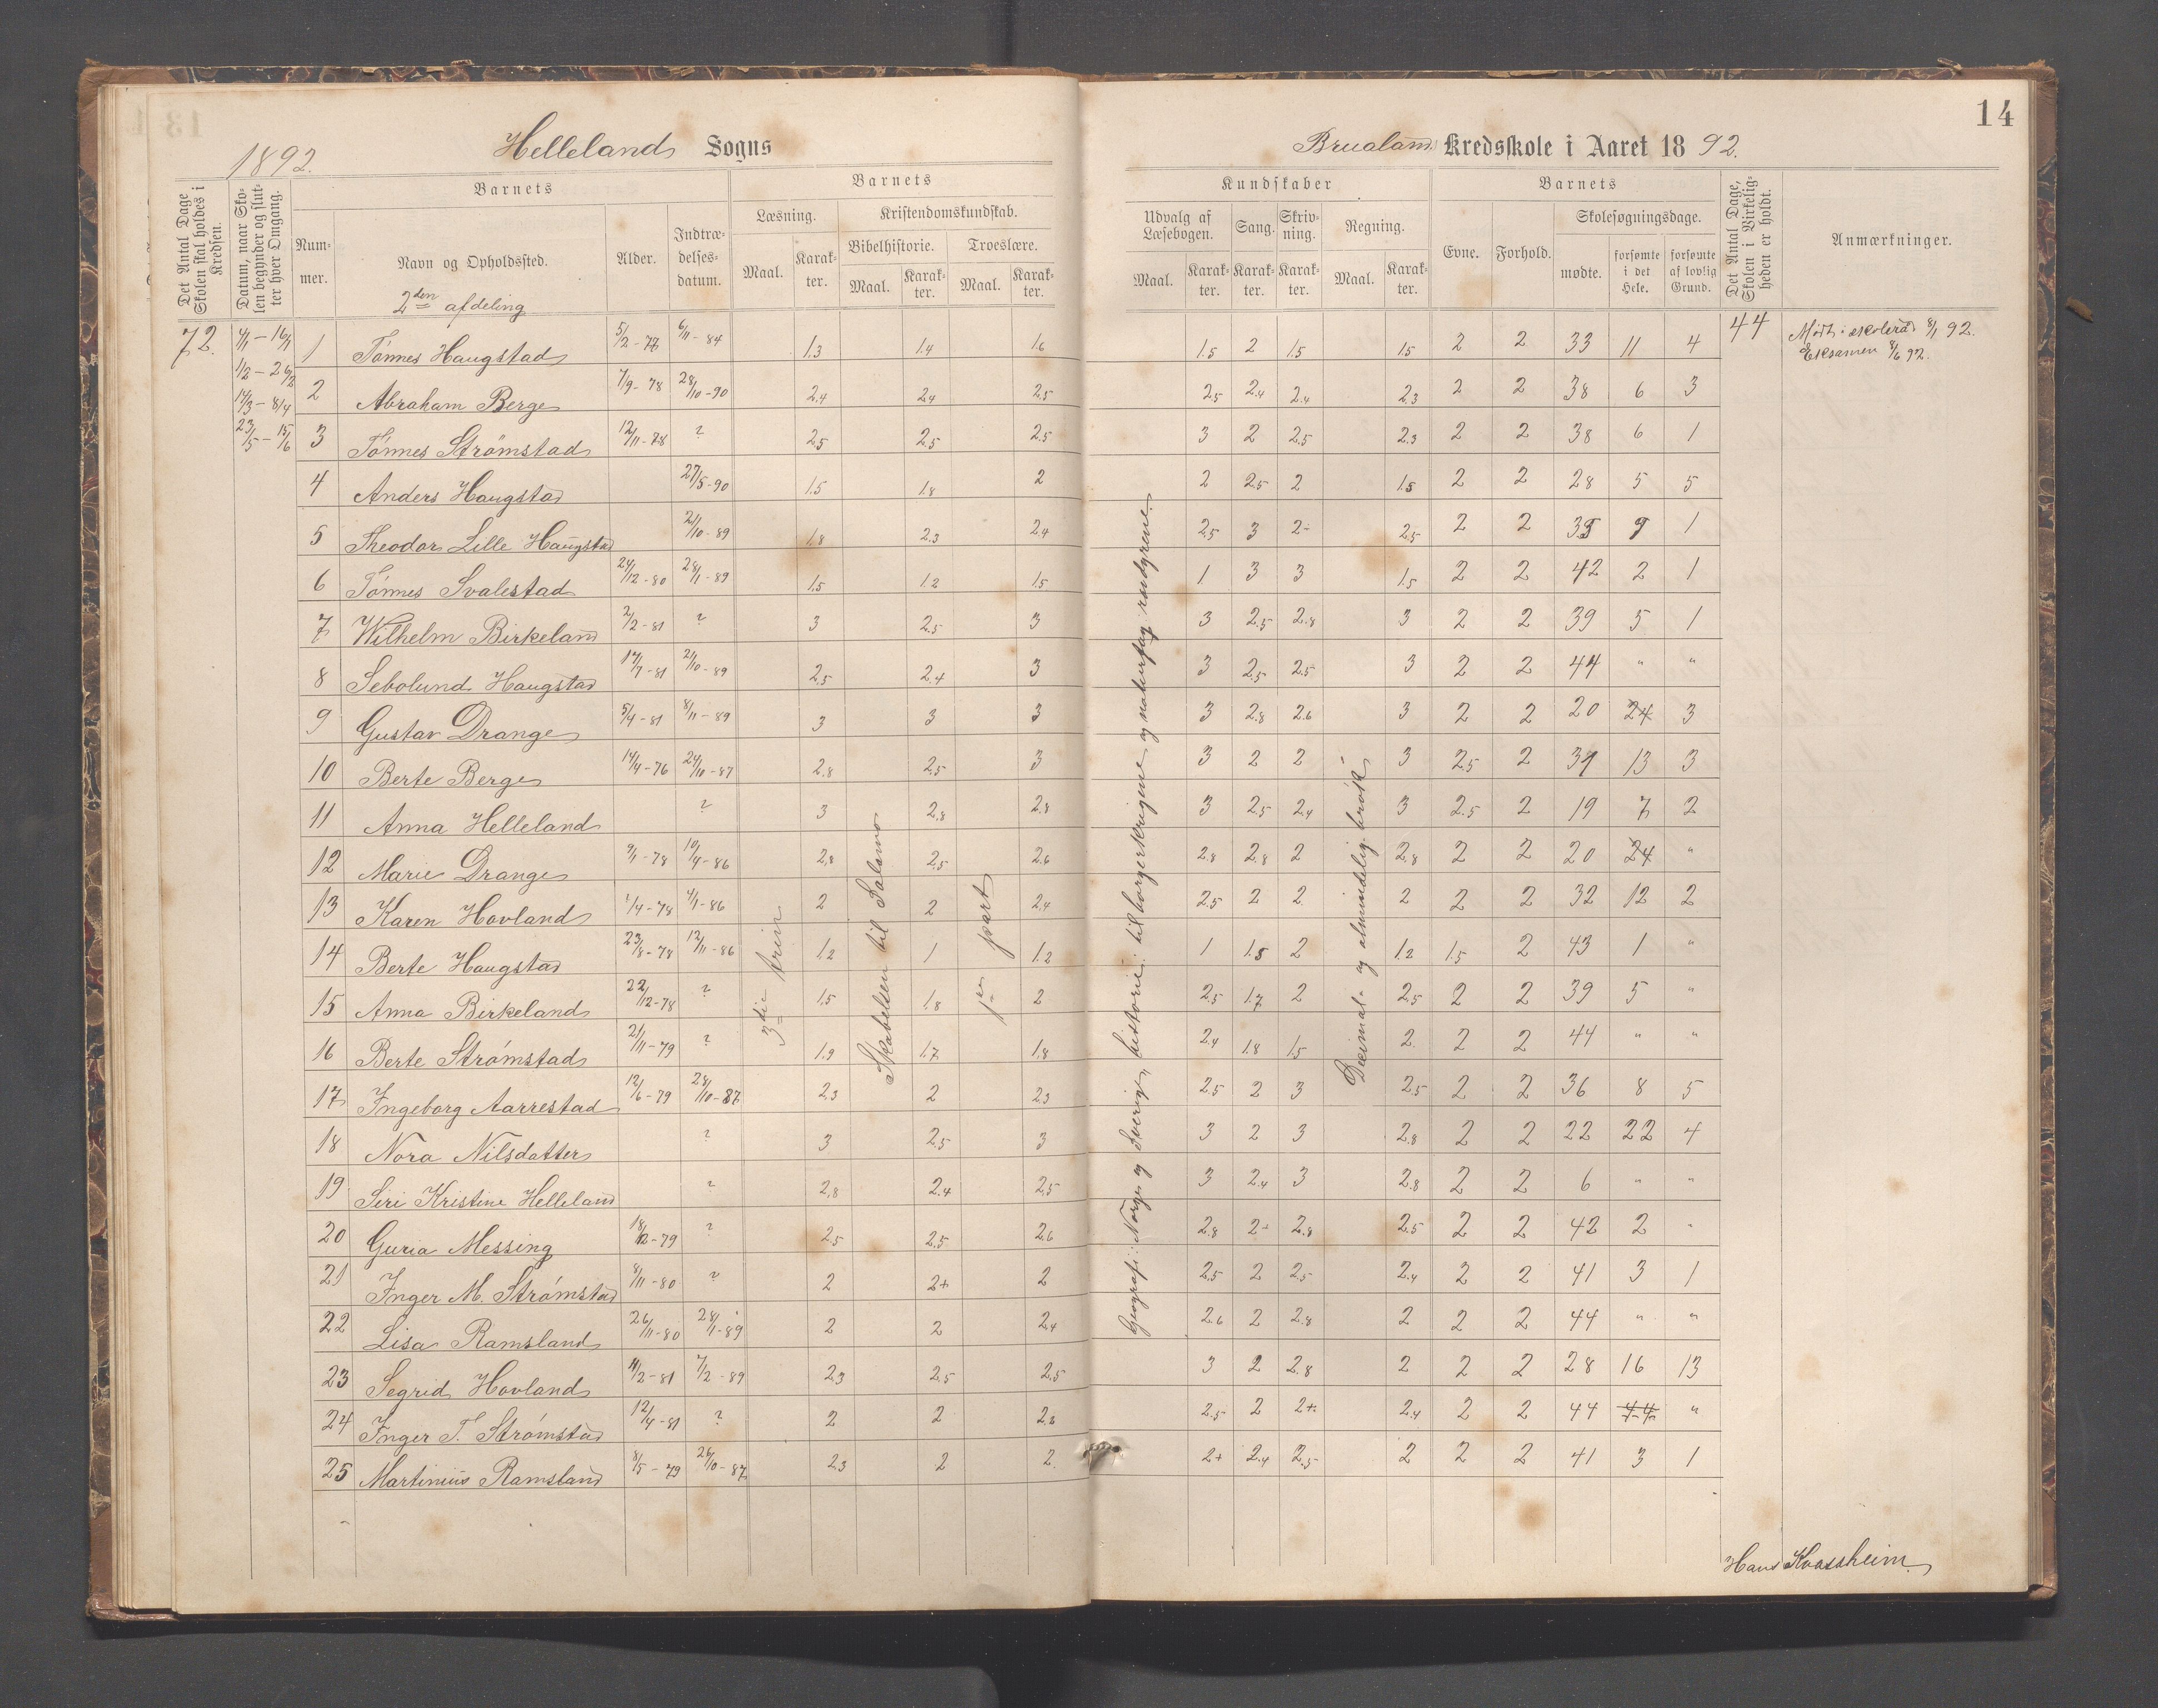 14
1892.
Hellelands Sogns
Brualand Kredsskole i Aaret 1892.
Det Antal Dage Skolen skal holdes i Kredsen.
Datum, naar Skolen begynder og slutter hver Omgang.
Barnets
Nummer.
Navn og Opholdssted.
2den afdeling
Alder.
Indtrædelsesdatum.
Barnets
Læsning.
Kristendomskundskab.
Bibelhistorie.
Troeslære.
Maal. Karakter. Maal. Karakter. Maal. Karakter.
Kundskaber
Udvalg af Læsebogen.
Sang.
Skrivning.
Regning.
Maal. Karakter. Karakter. Karakter. Maal. Karakter.
Barnets
Evne.
Forhold.
Skolesøgningsdage.
mødte.
forsømte i det Hele.
forsømte af lovlig Grund.
Det Antal Dage, Skolen i Virkeligheden er holdt.
Anmærkninger.
72.
1/2 – 26/2
14/3 – 8/4
23/5 – 15/6
1 Tønnes Haugstad 5/2-77 6/11-84 1.3 1.4 1.6 1.5 2 1.5 1.5 2 2 33 11 4 44
8/1 92.
Eksamen 8/6 92.
2 Abraham Berge 7/9-78 28/10-90 2.4 2.4 2.5 2.5 2.4 2.4 2.3 2 2 38 6 3
3 Tønnes Strømstad 12/11-78 ? 2.5 2.5 2.5 3 2 2.5 2.3 2 2 38 6 1
4 Anders Haugstad 27/5-90 1.5 1.8 2 2 2.5 2 1.5 2 2 28 5 5
5 Theodor Lille Haugstad 21/10-89 1.8 2.3 2.4 2.5 3 2- 2.5 2 2 35 9 1
6 Tønnes Svalestad 24/12-80 28/1-89 1.5 1.2 1.5 1 3 3 1.5 2 2 42 2 1
7 Wilhelm Birkeland 2/2-81 ? 3 2.5 3 3 2.5 2.8 3 2 2 39 5 1
8 Sebolund Haugstad 17/7-81 21/10-89 2.5 2.4 3 3 2.5 2.5 3 2 2 44 " "
9 Gustav Drange 5/4-81 8/11-89 3 3 3 3 2.8 2.6 3 2 2 20 24 3
10 Berte Berge 14/4-76 24/10-87 2.8 2.5 3 3 2 2 3 2.5 2 31 13 3
11 Anna Helleland ? 3 2.8 2.8 3 2.5 2.4 3 2.5 2 19 7 2
12 Marie Drange 9/1-78 10/4-86 2.8 2.5 2.6 2.8 2.8 2 2.8 2 2 20 24 "
13 Karen Hovland 1/4-78 4/1-86 2 2 2.4 2.5 2 2 2 2 2 32 12 2
14 Berte Haugstad 23/8-78 12/11-86 1.2 1 1.2 1 1.5 2 1.2 1.5 2 43 1 "
15 Anna Birkeland 22/12-78 ? 1.5 1.8 2 2.5 1.7 2 2.5 2 2 39 5 "
16 Berte Strømstad 21/11-79 ? 1.9 1.7 1.8 2.4 1.8 1.5 2. 2 2 44 " "
17 Ingeborg Aarrestad 12/6-79 28/10-87 2.3 2 2.3 2.5 2 3 2.5 2 2 36 8 5
18 Nora Nilsdatter ? 3 2.5 3 3 2 3 2.8 2 2 22 22 4
19 Siri Kristine Helleland ? 2.8 2.4 2.5 3 2.4 3 2.8 2 2 6 " "
20 Guria Messing 18/12-79 ? 2.5 2.5 2.6 2.8 2- 2.8 2.5 2 2 42 2 "
21 Inger M. Strømstad 8/11-80 ? 2 2+ 2 2.5 2 2.5 2.4 2 2 41 3 1
22 Lisa Ramsland 26/11-80 28/1-89 2 2 2.4 2.6 2 2.8 2 2 2 44 " "
23 Segrid Hovland 11/2-81 7/2-89 2.3 2.5 2.5 3 2 2.8 2 2 2 28 16 13
24 Inger T. Strømstad 12/4-81 ? 2 2 2.8 2.5 2 2+ 2.4 2 2 44 44 "
25 Martinius Ramsland 8/5-79 26/10-87 2.3 2 2. 2+ 2.4 2.5 2 2 2 41 3 1
3die trin
Skabelsen til Salomo
1ste part
Geografi: Norge og Sverig, historie: til borgerkrigene og naturfag rovdyrene.
Decimal- og almindelig brøk
Hans Kvassheim.